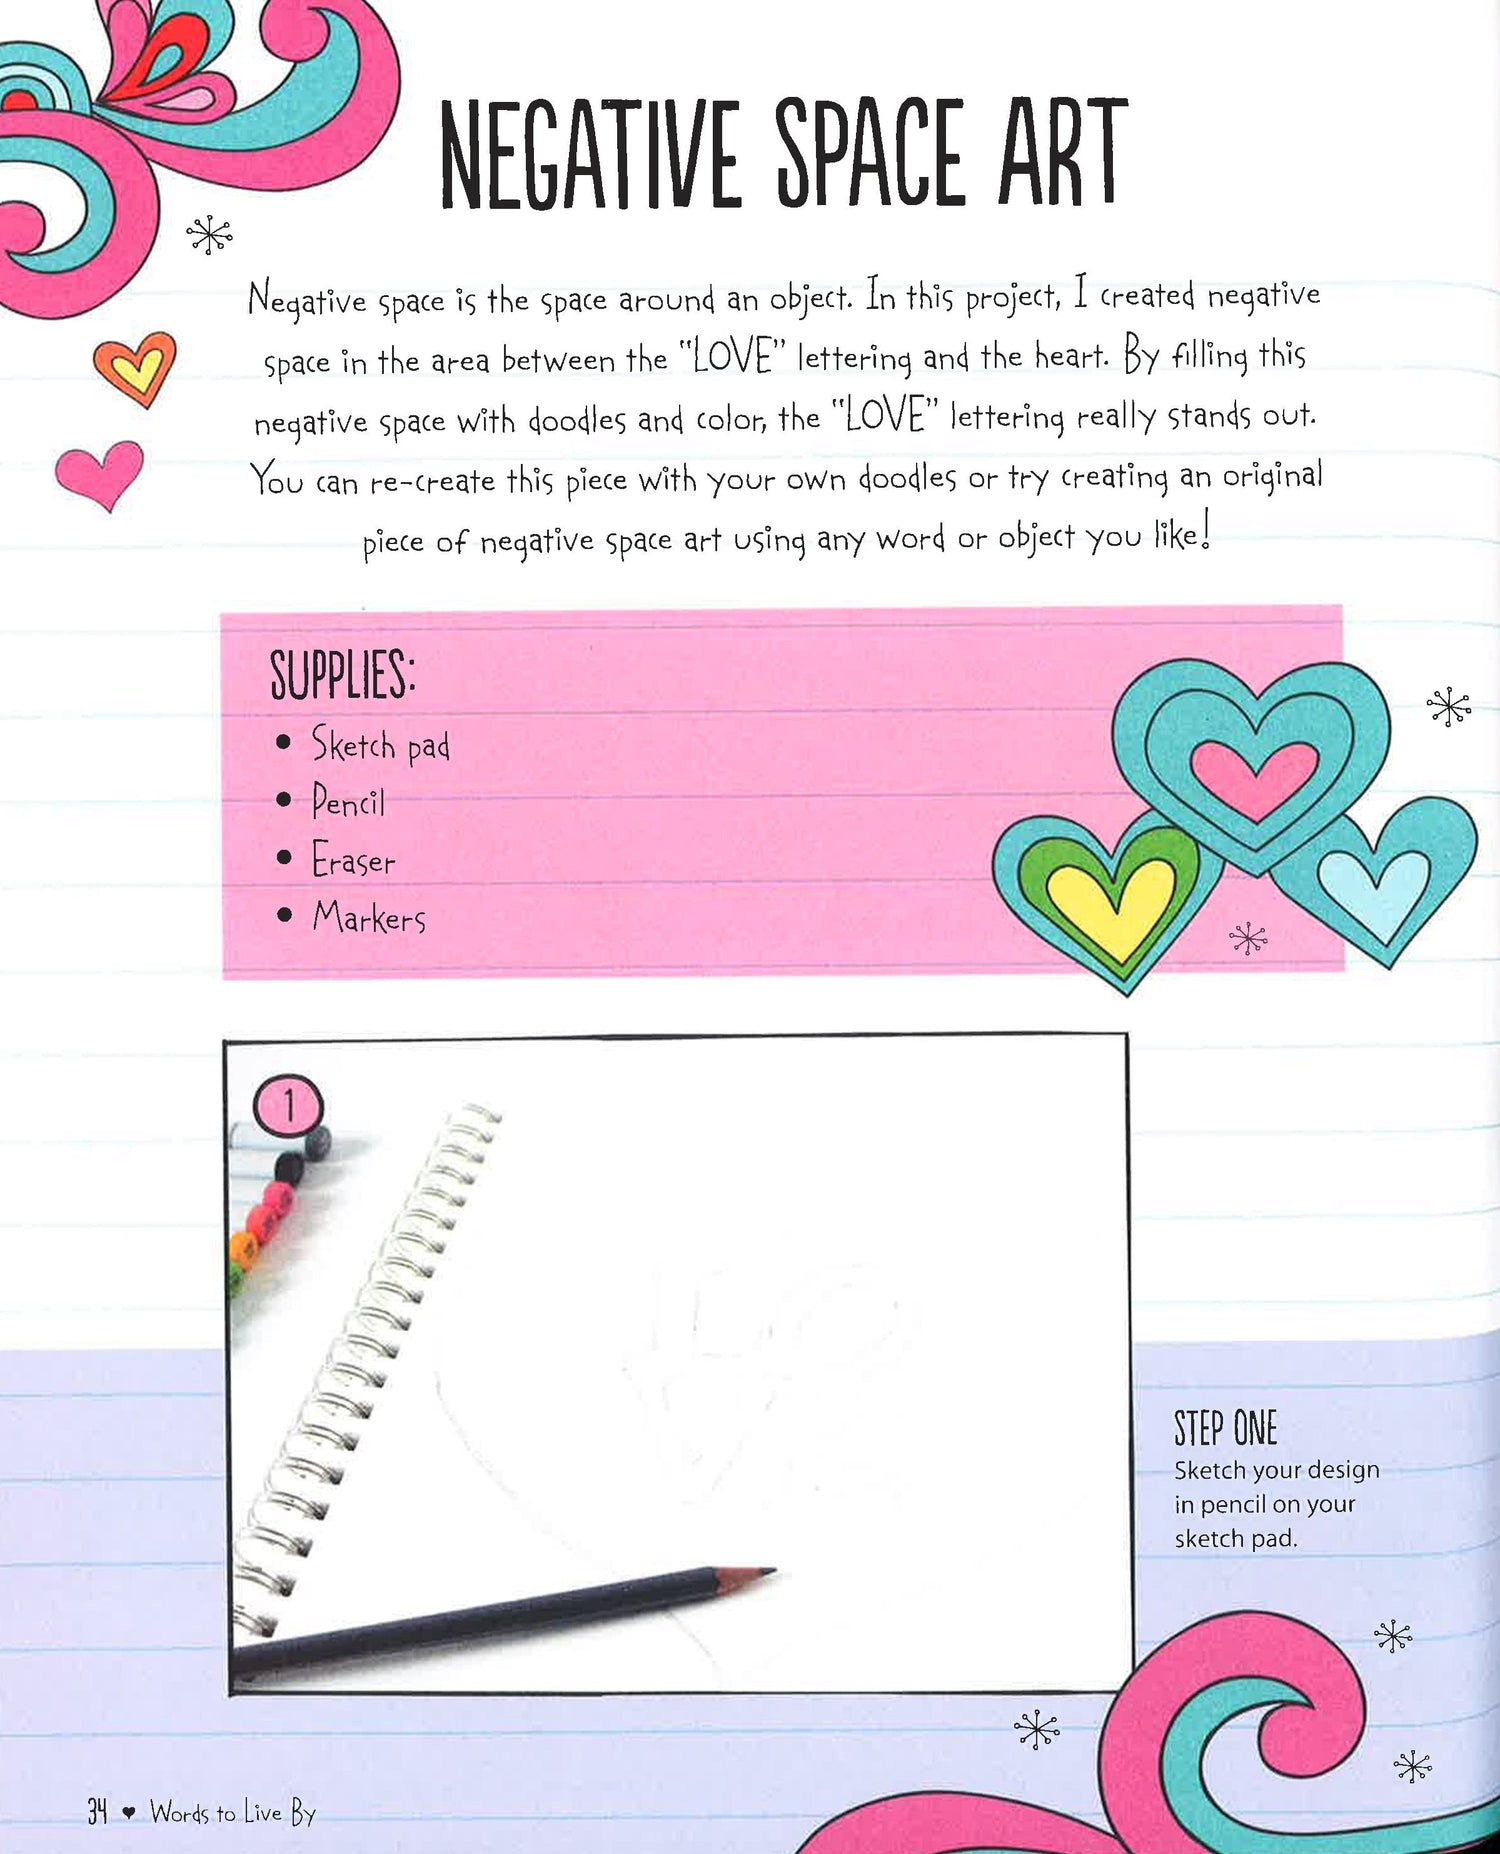 NEGATIVE SPACE ART
Negative space is the space around an object. In this project, I created negative
space in the area between the "LOVE" lettering and the heart. By filling this
negative space with doodles and color, the "LOVE" lettering really stands out.
You can re-create this piece with your own doodles or try creating an original
piece of negative space art using any word or object you like!
SUPPLIES:
• Sketch pad
• Pencil
• Eraser
• Markers
1
STEP ONE
Sketch your design
in pencil on your
sketch pad.
34 ♥ Words to Live By